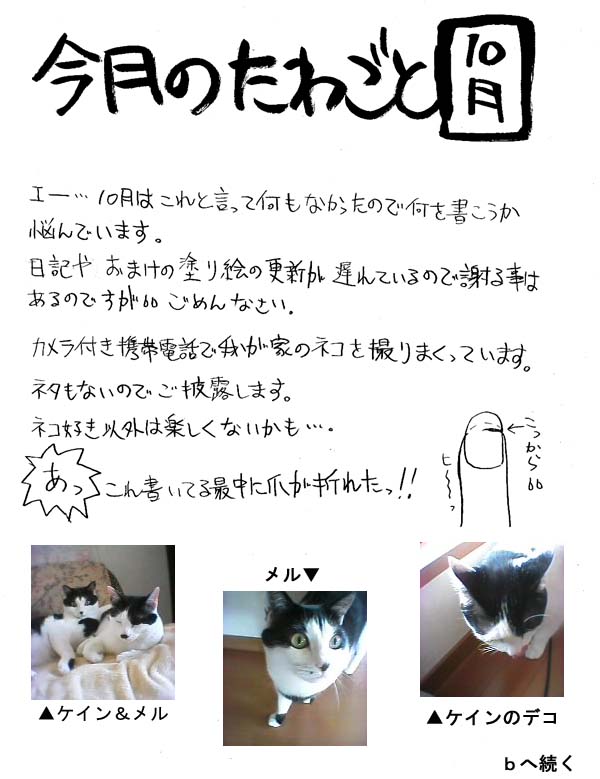 今月のたわごと 10月
エー… 10月はこれと言って何もなかったので何を書こうか
悩んでいます。
日記や おまけの塗り絵の更新が 遅れているので謝る事は
あるのですが。。 ごめんなさい。
カメラ付き携帯電話で我が家のネコを撮りまくっています。
ネタもないのでご披露します。
ネコ好き以外は楽しくないかも…。
あっ これ書いてる最中に爪が折れたっ!!
←こっから。。
ヒ〜〜っ
メル▼
▲ケイン&メル
▲ケインのデコ
bへ続く